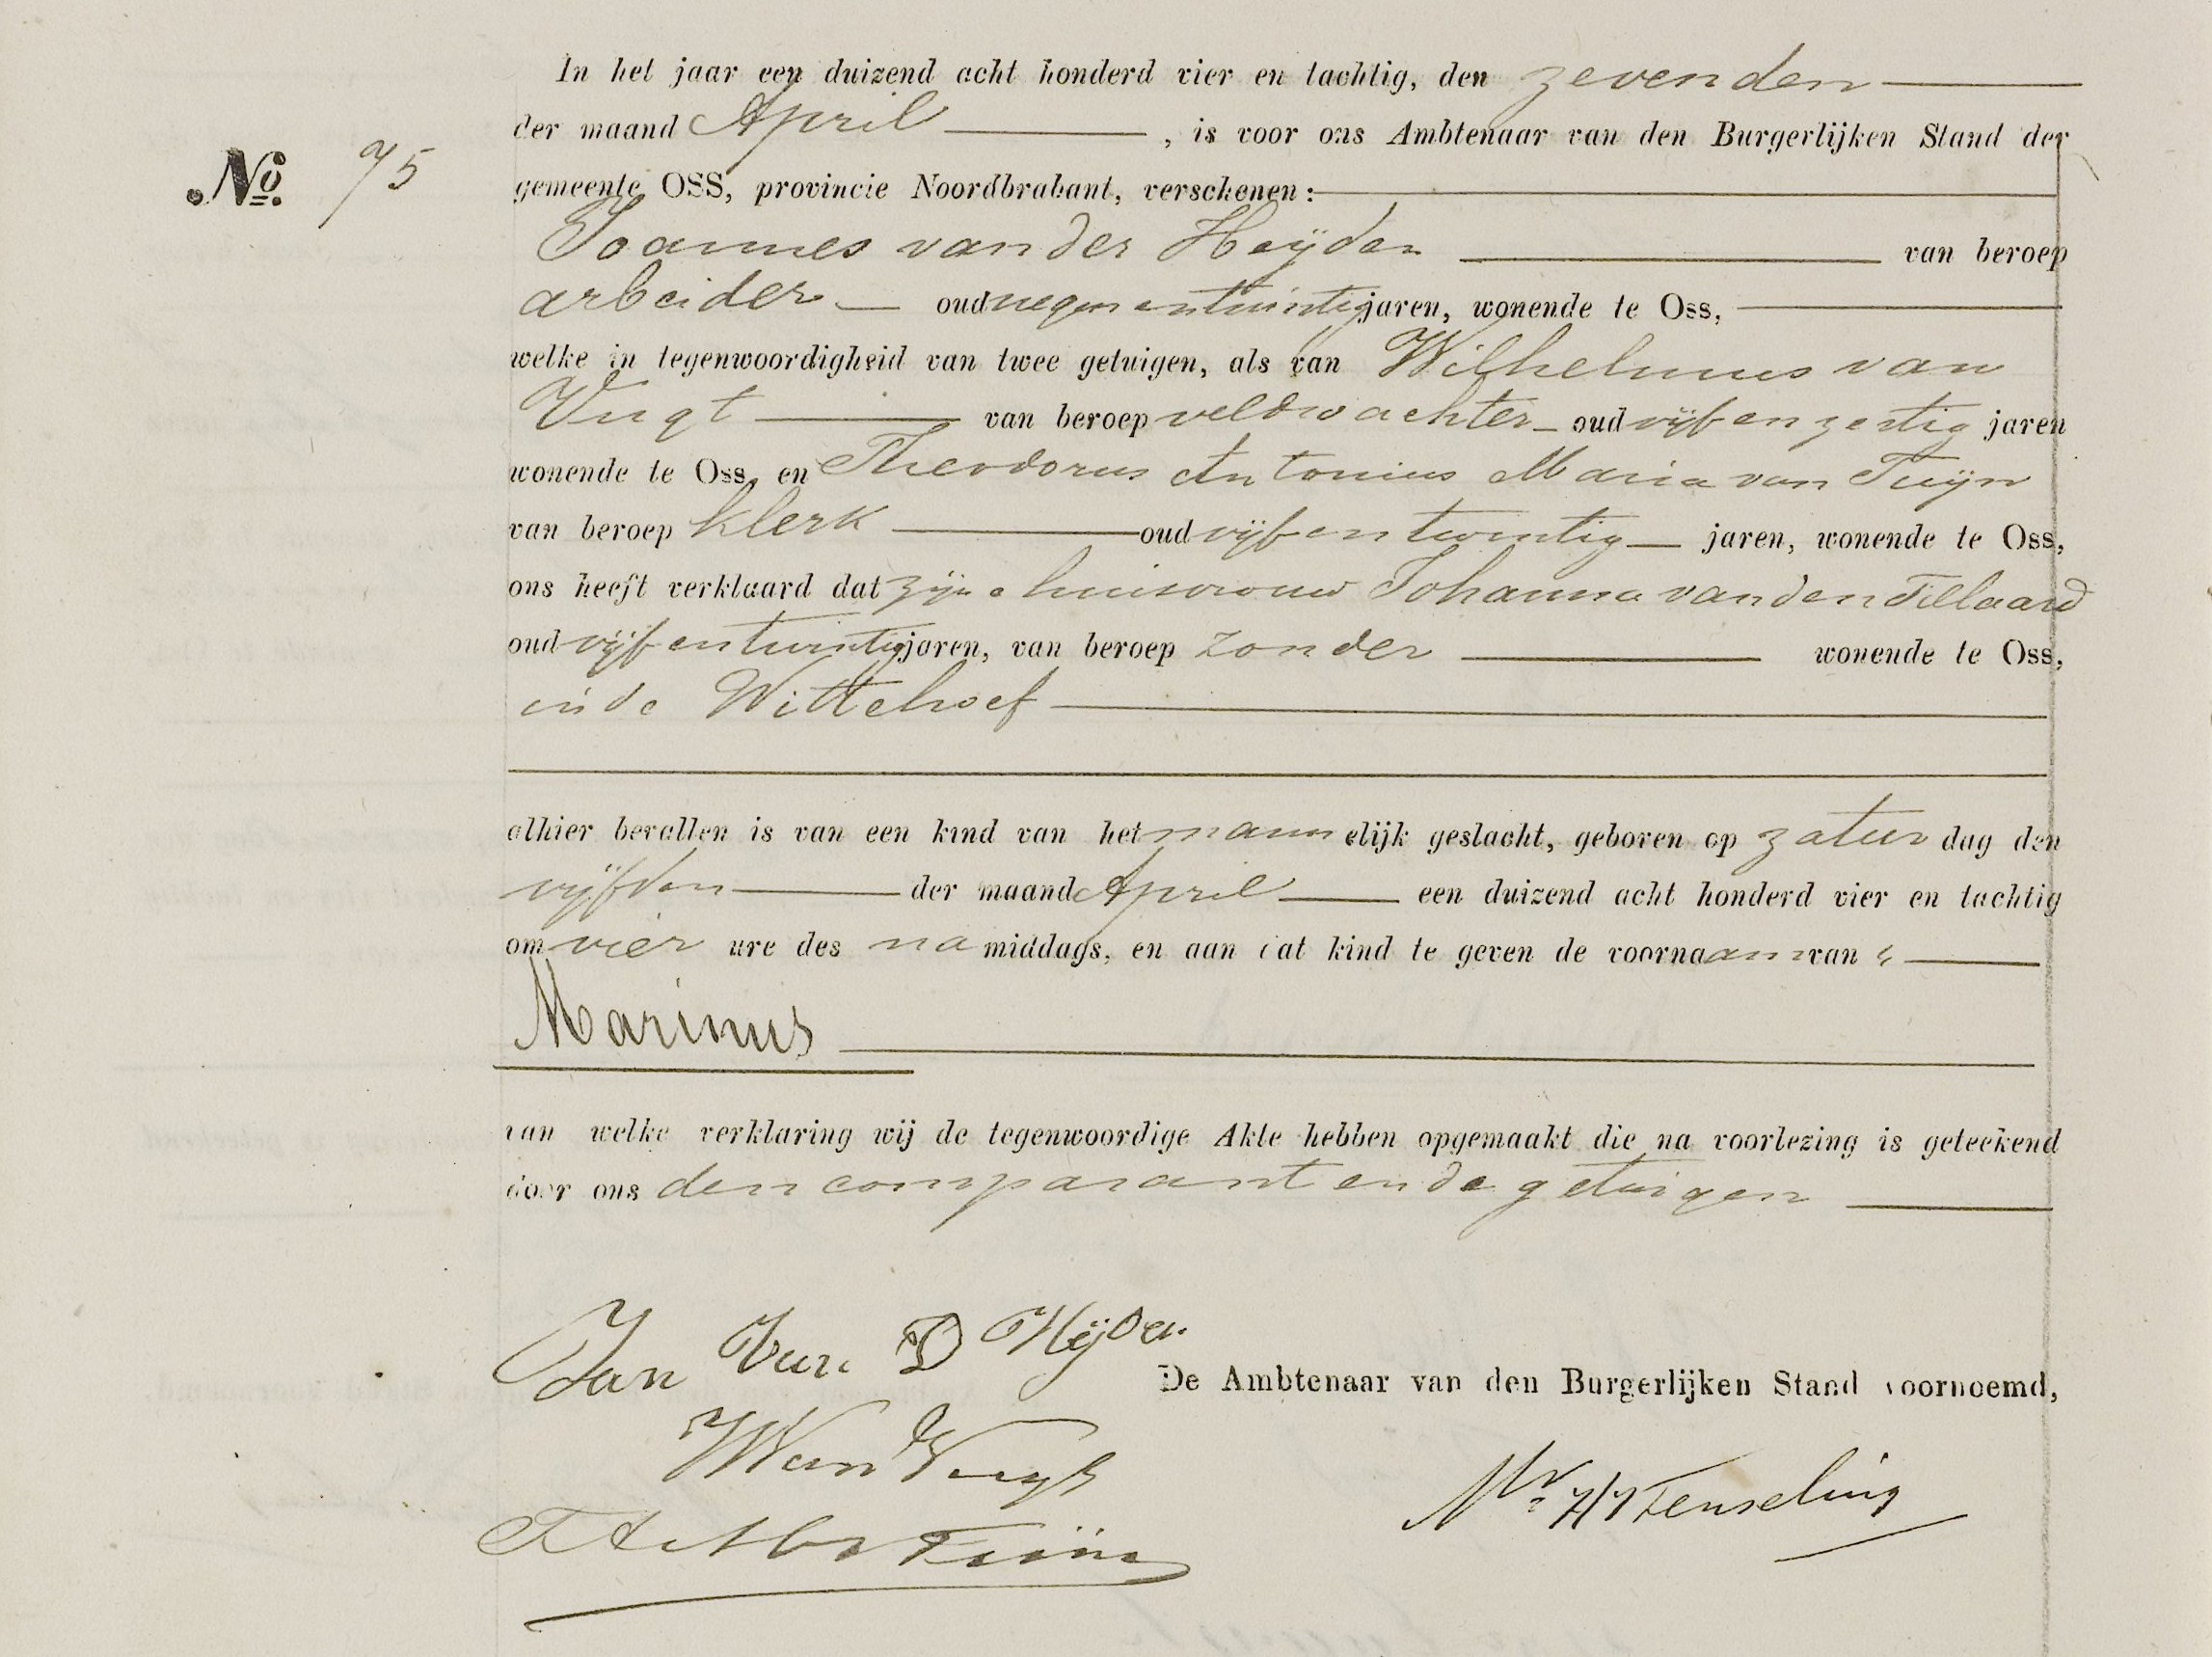 In het jaar een duizend acht honderd vier en tachtig, den zevenden
der maand April, is voor ons Ambtenaar van den Burgerlijken Stand der
No. 75
gemeente OSS, provincie Noordbrabant, verschenen:
Joannes van der Heijden van beroep
arbeider oud negen entwintig jaren, wonende te Oss,
welke in tegenwoordigheid van twee getuigen, als van Wilhelmus van
Vugt van beroep veldwachter oud vijf en zestig jaren
wonende te Oss, en Theodorus Antonius Maria van Tuijn
van beroep klerk oud vijf en twintig jaren, wonende te Oss,
ons heeft verklaard dat zijne huisvrouw Johanna van den Tillaard
oud vijf en twintig jaren, van beroep zonder wonende te Oss,
in de Wittehoef
alhier bevallen is van een kind van het mannelijk geslacht, geboren op zaturdag den
vijfden der maand April een duizend acht honderd vier en tachtig
om vier ure des namiddags, en aan dat kind te geven de voornaam van
Marinus
van welke verklaring wij de tegenwoordige Akte hebben opgemaakt die na voorlezing is geteekend
door ons den comparant en de getuigen
Jan Van D Heijden
De Ambtenaar van den Burgerlijken Stand voornoemd,
WVan Vugt